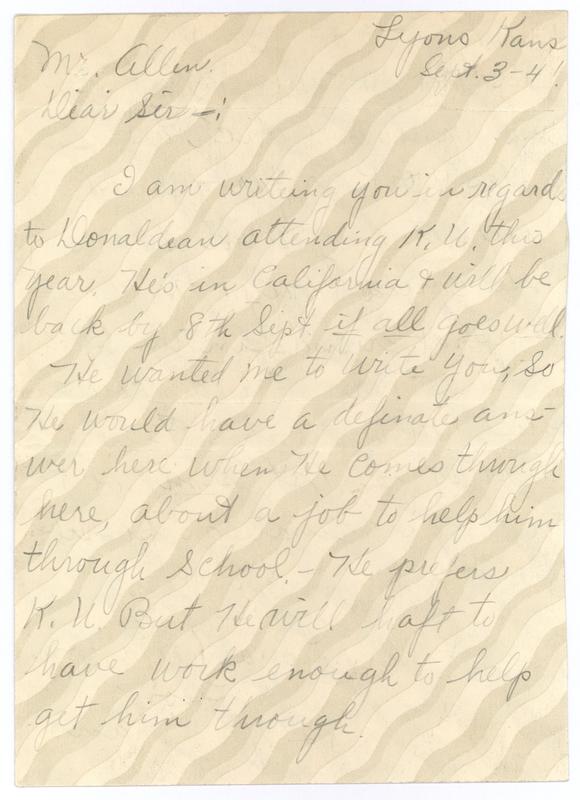 Lyons Kans
Mr. Allen. Sept. 3-4!
Dear Sir—:
I am writeing you in regards
to Donaldean attending K. U. this
year. He's in California & will be
back by 8th Sept. if all goes well.
He wanted me to write you, so
He would have a definate ans-
wer here when He comes through
here, about a job to help him
through School. — He prefers
K. U. But He will haft to
have work enough to help
get him through.